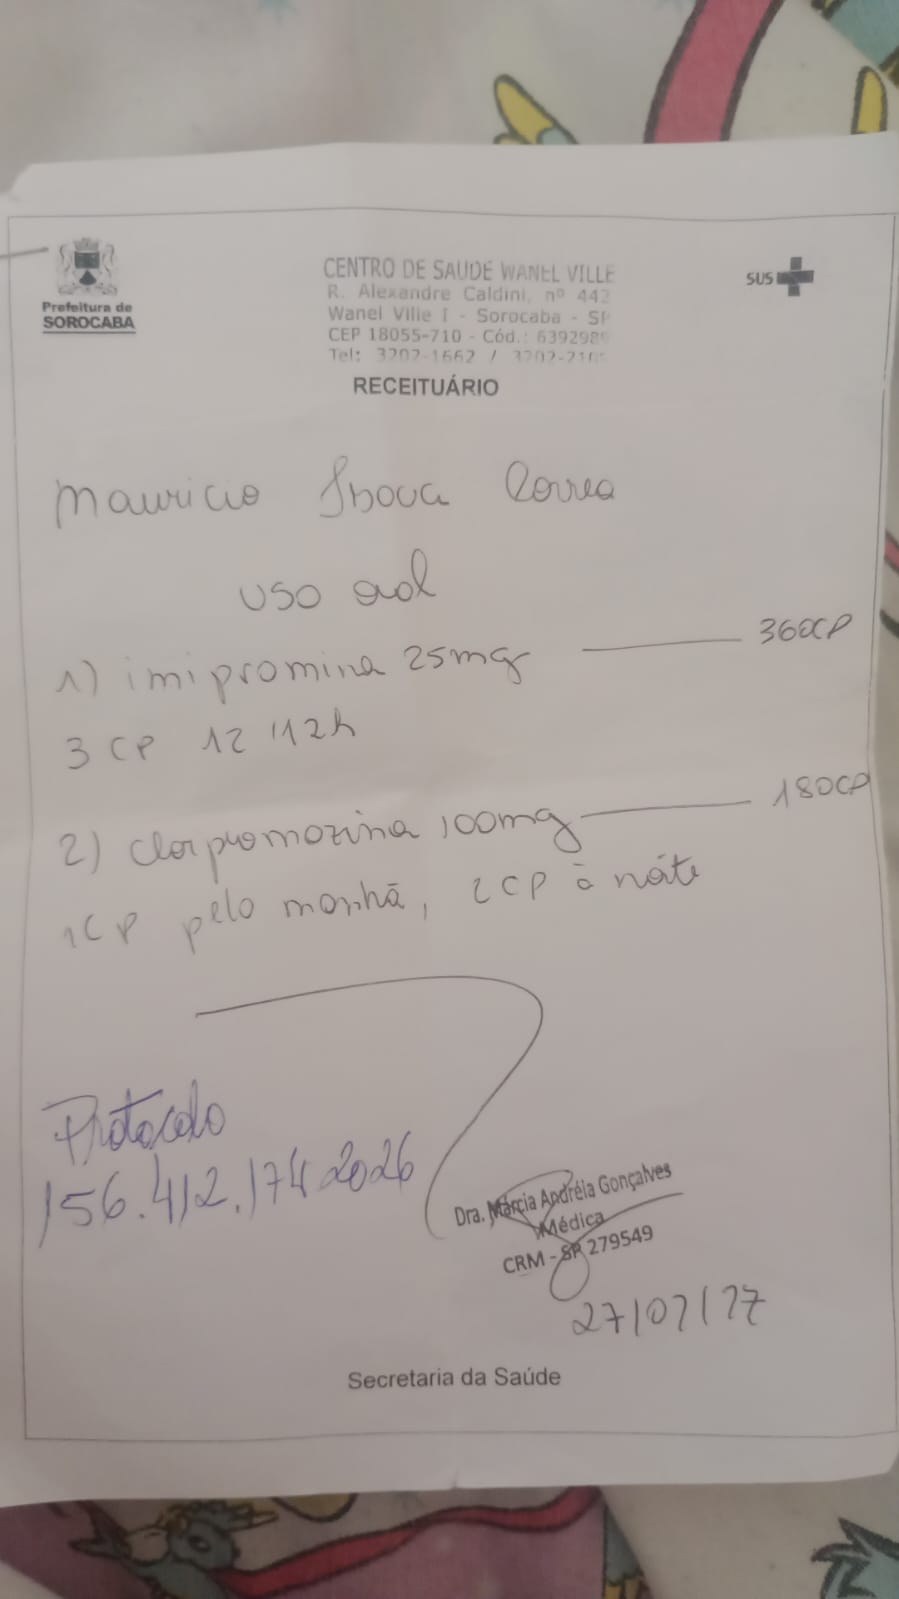 Prefeitura de
SOROCABA
CENTRO DE SAUDE WANEL VILLE
R. Alexandre Caldini, nº 442
Wanel Ville I - Sorocaba - SP
CEP 18055-710 - Cód.: 6392989
Tel: 3202-1662 / 3202-2165
SUS
RECEITUÁRIO
Mauricio Correa
USO oral
1) imipromina 25mg 360CP
3 CP 12/12h
2) Clorpromozina 100mg 180CP
1CP pelo manhã, 2CP à noite
Protocolo
156.412.174 2026
Dra. Márcia Andréia Gonçalves
Médica
CRM - SP 279549
Secretaria da Saúde